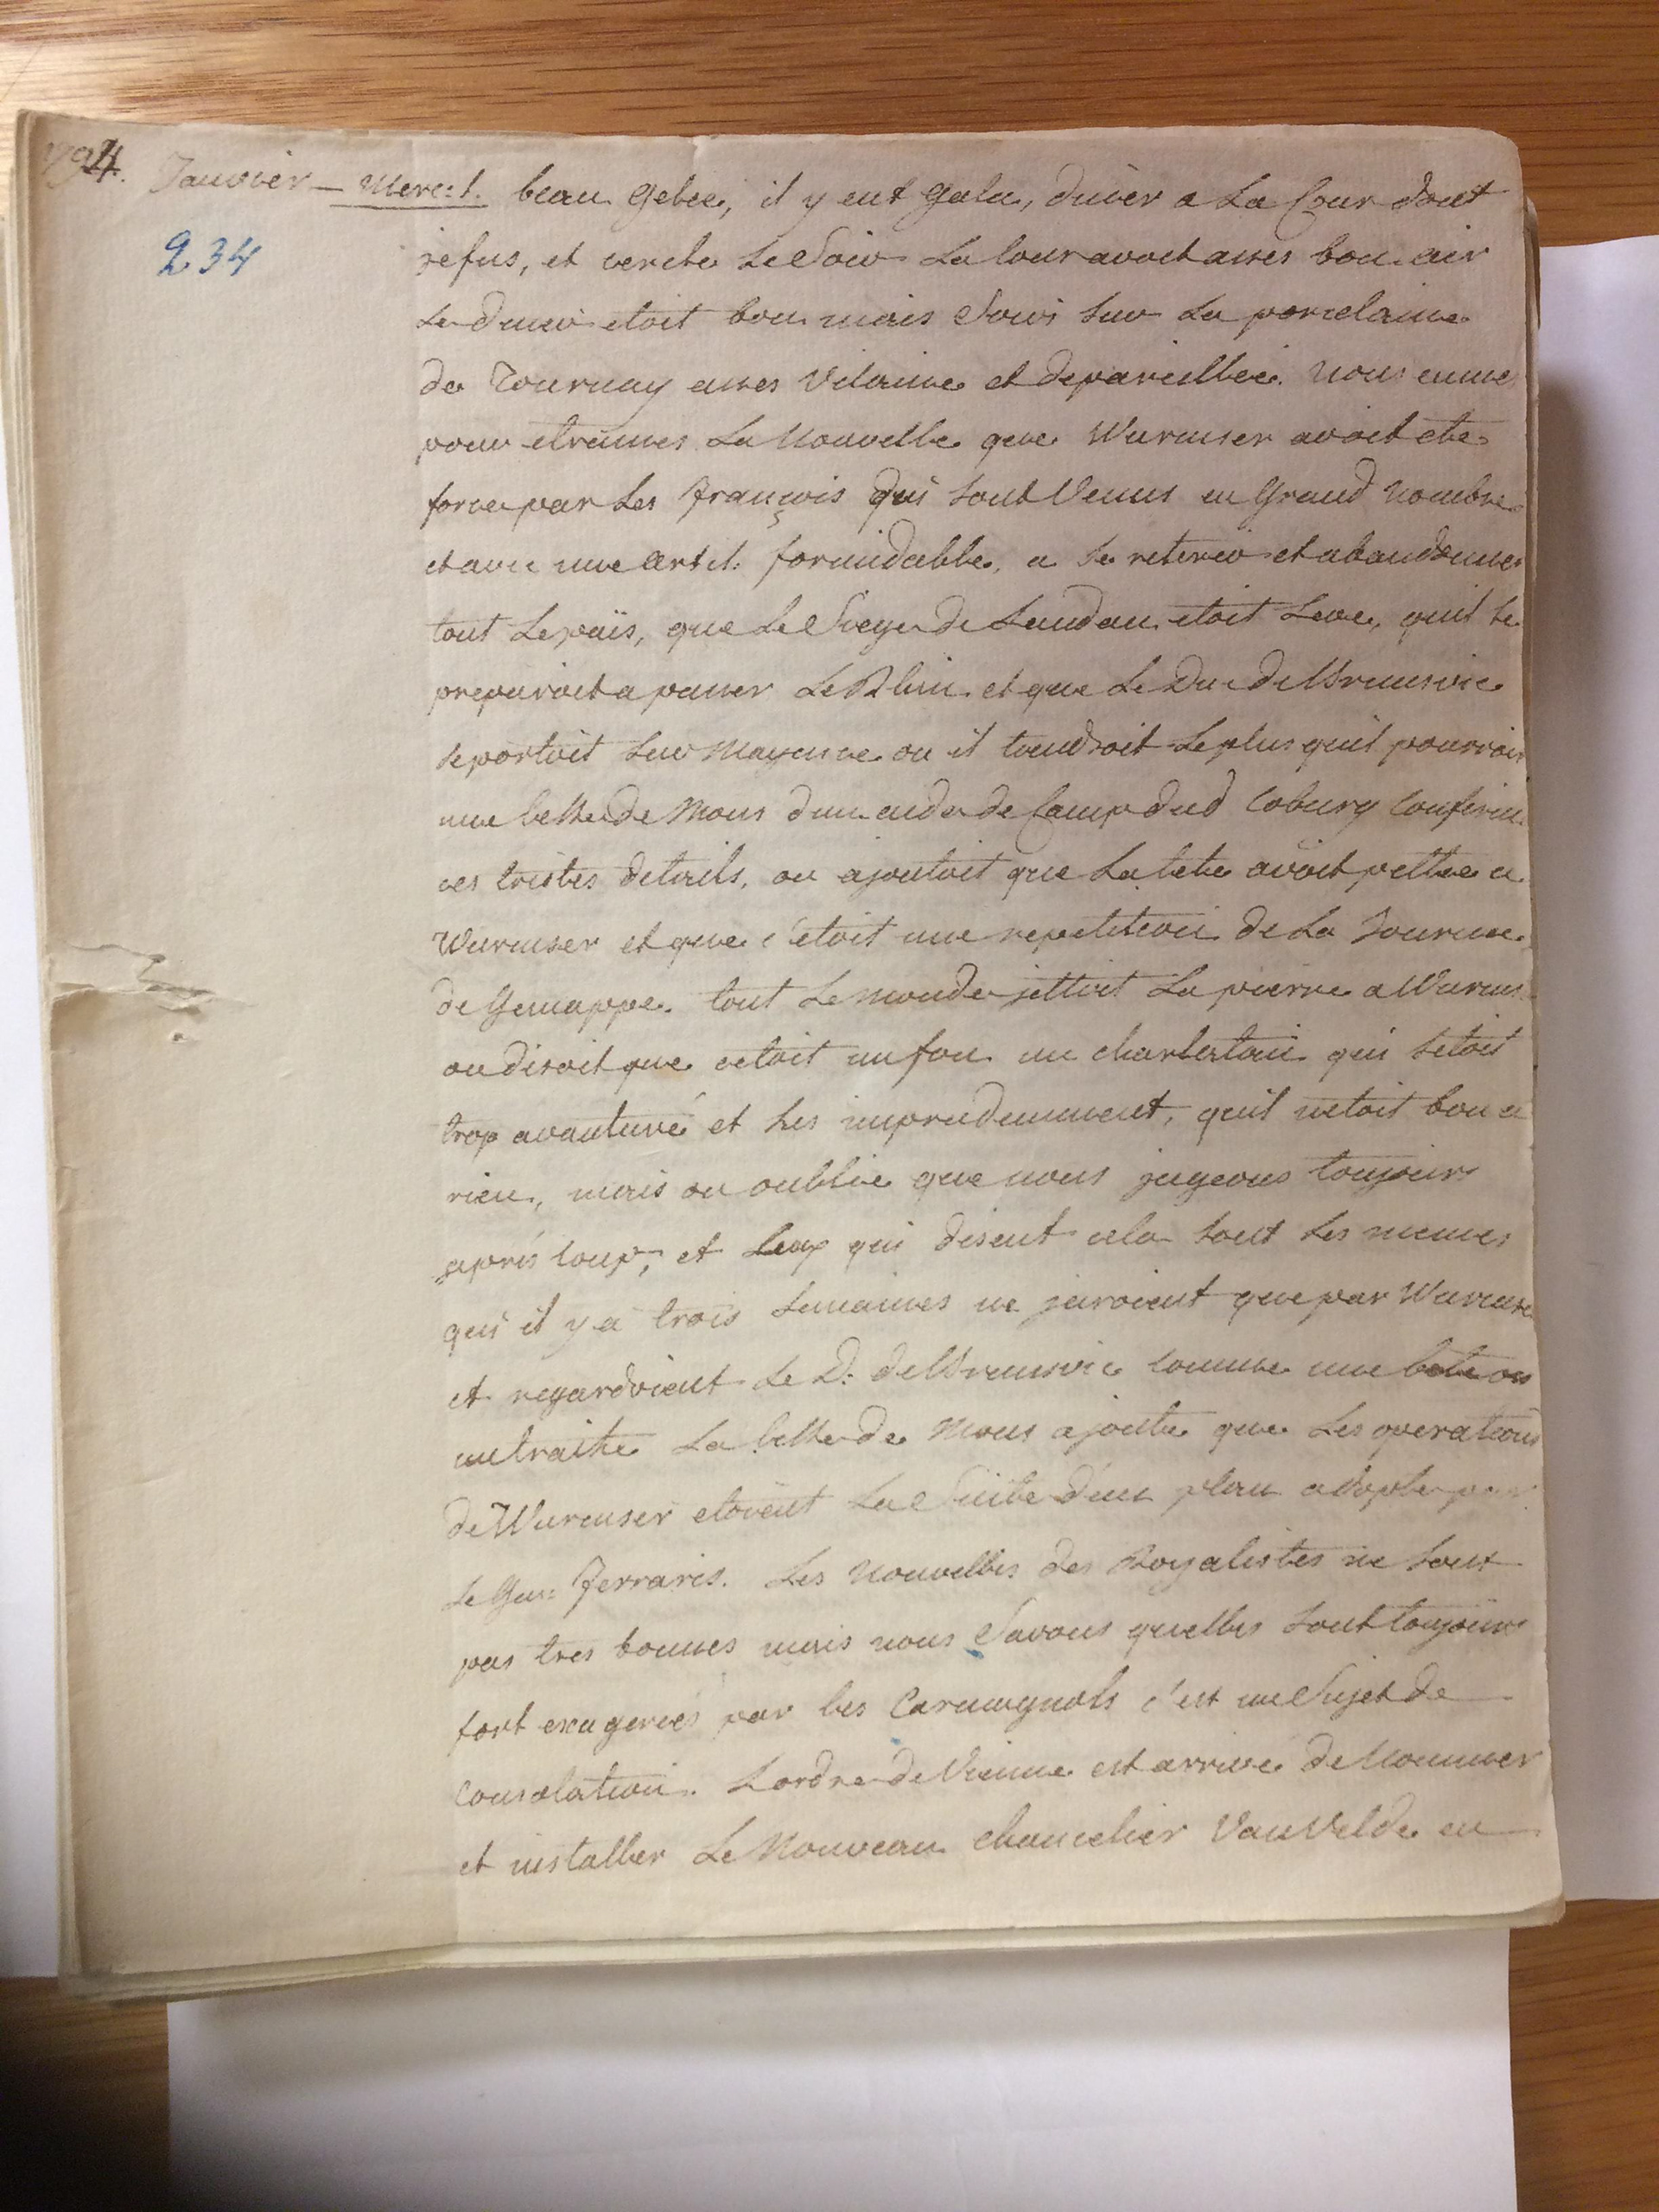 1794. Janvier — Merc: 1. beau Gelée, il y eut Gala, diner a La Cour dont
234
je fus, et cercle Le Soir La Cour avoit asses bon air
Le diner etoit bon mais Servi sur La porcelaine
de Tournay asses Vilaine et depareillée. nous eumes
pour etreines La Nouvelle que Wurmser avoit eté
forcé par Les François qui sont Venus en Grand Nombre
et avec une artil: formidable, a se retirer et abandonner
tout Le païs, que Le Siege de Landau etoit Levé, quil se
preparoit a passer Le Rhin et que Le Duc de Brunsvic
se portoit sur Mayence ou il tiendroit Le plus quil pourroit
une lettre de Mons dun aide de Camp du d Coburg confirm
ces tristes details, on ajoutoit que La tete avoit pettée a
Wurmser et que c'etoit une repetition de La Journée
de Gemappe. tout Le monde jettoit La pierre a Wurms
on disoit que cetoit un fou un charlatan qui setoit
trop avanturé et tres imprudemment, quil netoit bon a
rien, mais on oublie que nous jugeons toujours
après coup, et Ceux qui disent cela sont Les memes
qui il y a trois Semaines ne juroient que par Wurmse
et regardoient Le D: de Brunsvic comme une bete ou
un traitre La lettre de Mons ajoute que Les operations
de Wurmser etoient La Suite d'un plan adopté par
Le Gen: Ferraris. Les Nouvelles des Royalistes ne sont
pas tres bonnes mais nous Savons quelles sont toujours
fort exagerées par les Carmagnols c'est un Sujet de
Consolation. Lordre de Vienne est arrivé de Nommer
et installer Le Nouveau Chancelier Van Velde en